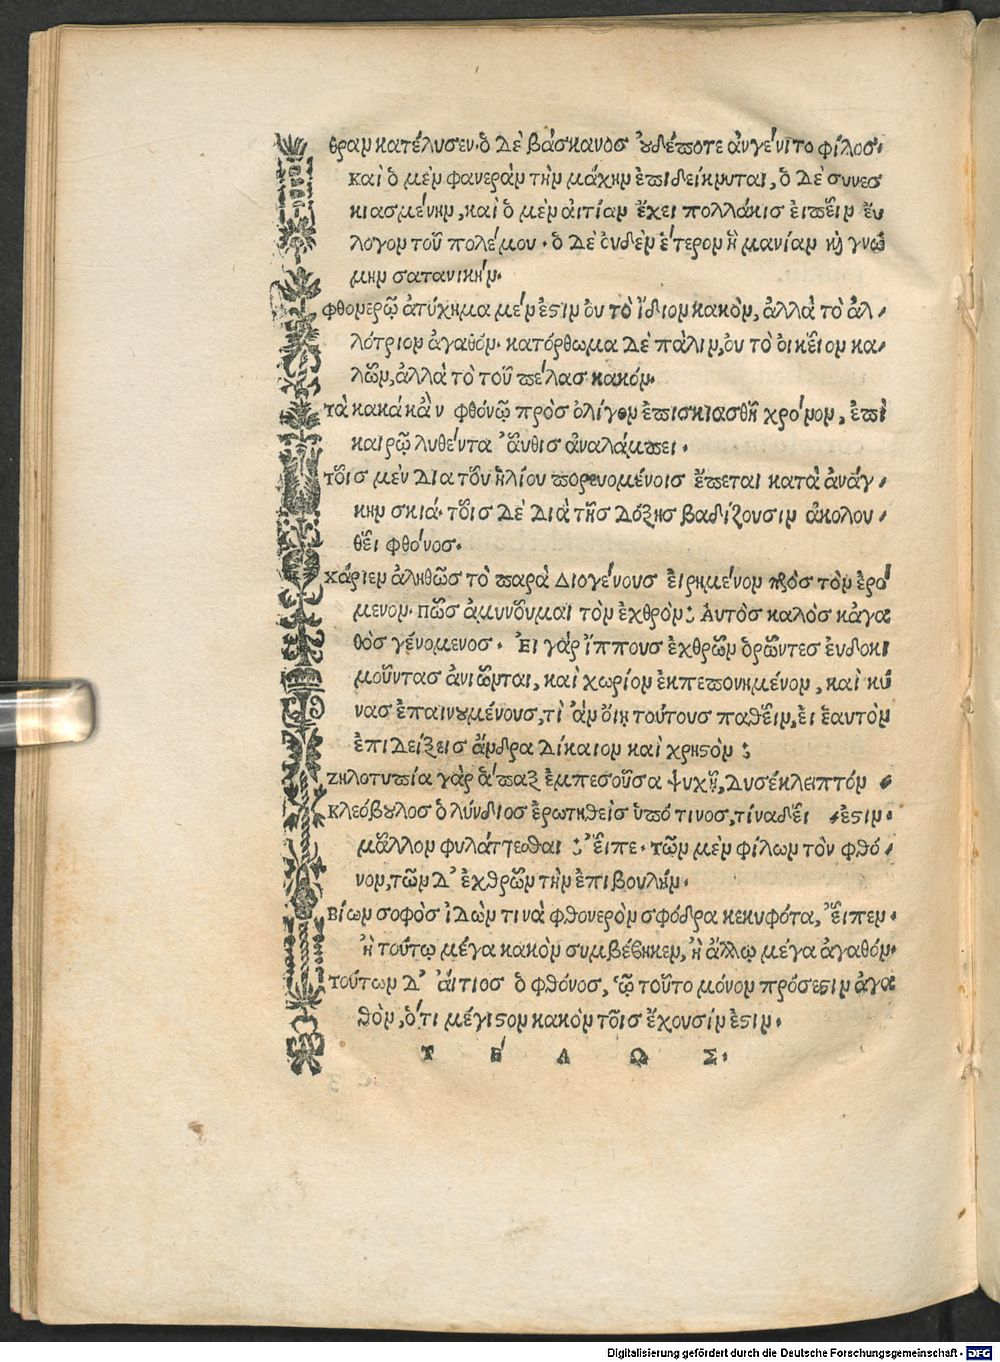 θραν κατέλυσεν· ὁ Δὲ βάσκανος ȣδέποτε ἀνγένιτο φίλος·
καὶ ὁ μὲν φανερὰν τὴν μάχην ἐπιδείκνυται, ὁ Δὲ συνεσ
κιασμένην, καὶ ὁ μὲν ἀιτίαν ἔχει πολλάκις ἐιπεῖν ἔυ
λογον τοῦ πολέμου· ὁ Δὲ ὀυδὲν ἕτερον ἢ μανίαν κỳ γνώ
μην σατανικήν·
φθονερῷ ἀτύχημα μέν ἐϛιν ὀυ τὸ ἴδιον κακὸν, ἀλλὰ τὸ ἀλ/
λότριον ἀγαθόν· κατόρθωμα Δὲ πάλιν, ὀυ τὸ ὀικεῖον κα/
λὸν, ἀλλὰ τὸ τοῦ πέλας κακόν·
τὰ κακά κἂν φθόνῳ πρὸς ὀλίγον ἐπισκιασθῇ χρόνον, ἐπὶ
καιρῷ λυθέντα ἄυθις ἀναλάμπει·
τοῖς μὲν Δια τοῦ ἡλίου πορευομένοις ἕπεται κατὰ ἀνάγ/
κην σκιά· τοῖς Δὲ Διὰ τῆς Δόξης βαδίζουσιν ἀκολου/
θεῖ φθόνος·
χάριεν ἀληθῶς τὸ παρὰ Διογένους ἐιρημένον πρὸς τὸν ἐρό
μενον· πῶς ἀμυνοῦμαι τὸν ἐχθρὸν; Ἀυτὸς καλὸς κἀγα
θὸς γένομενος· Ἐι γὰρ ἵππους ἐχθρῶν ὁρῶντες ἐυδοκι
μοῦντας ἀνιῶνται, καὶ χωρίον ἐκπεπονημένον, καὶ κύ
νας ἐπαινȣμένους, τὶ ἂν ὄιῃ τούτους παθεῖν, ἐι ἑαυτὸν
ἐπιΔείξεις ἄνδρα Δίκαιον καὶ χρηϛὸν;
ζηλοτυπία γὰρ ἅπαξ ἐμπεσοῦσα ψυχῇ, Δυσέκλειπτόν
κλεόβȣλος ὁ λύνδιος ἐρωτηθεὶς ὑπό τινος, τίνα δεῖ /ἐϛιν·
μᾶλλον φυλάττεσθαι; Ἔιπε· τῶν μὲν φίλων τὸν φθό/
νον, τῶν Δ' ἐχθρῶν τὴν ἐπιβουλήν·
Βίων σοφὸς ἰδὼν τινὰ φθονερὸν σφόδρα κεκυφότα, ἔιπεν·
ἢ τούτῳ μέγα κακὸν συμβέβηκεν, ἢ ἄλλῳ μέγα ἀγαθόν·
τούτων Δ' ἄιτιος ὁ φθόνος, ᾧ τοῦτο μόνον πρόσεϛιν ἀγα
θὸν, ὅτι μέγιϛον κακὸν τοῖς ἔχουσίν ἐϛιν·
Τ Έ Λ Ω Σ·
Digitalisierung gefördert durch die Deutsche Forschungsgemeinschaft - DFG